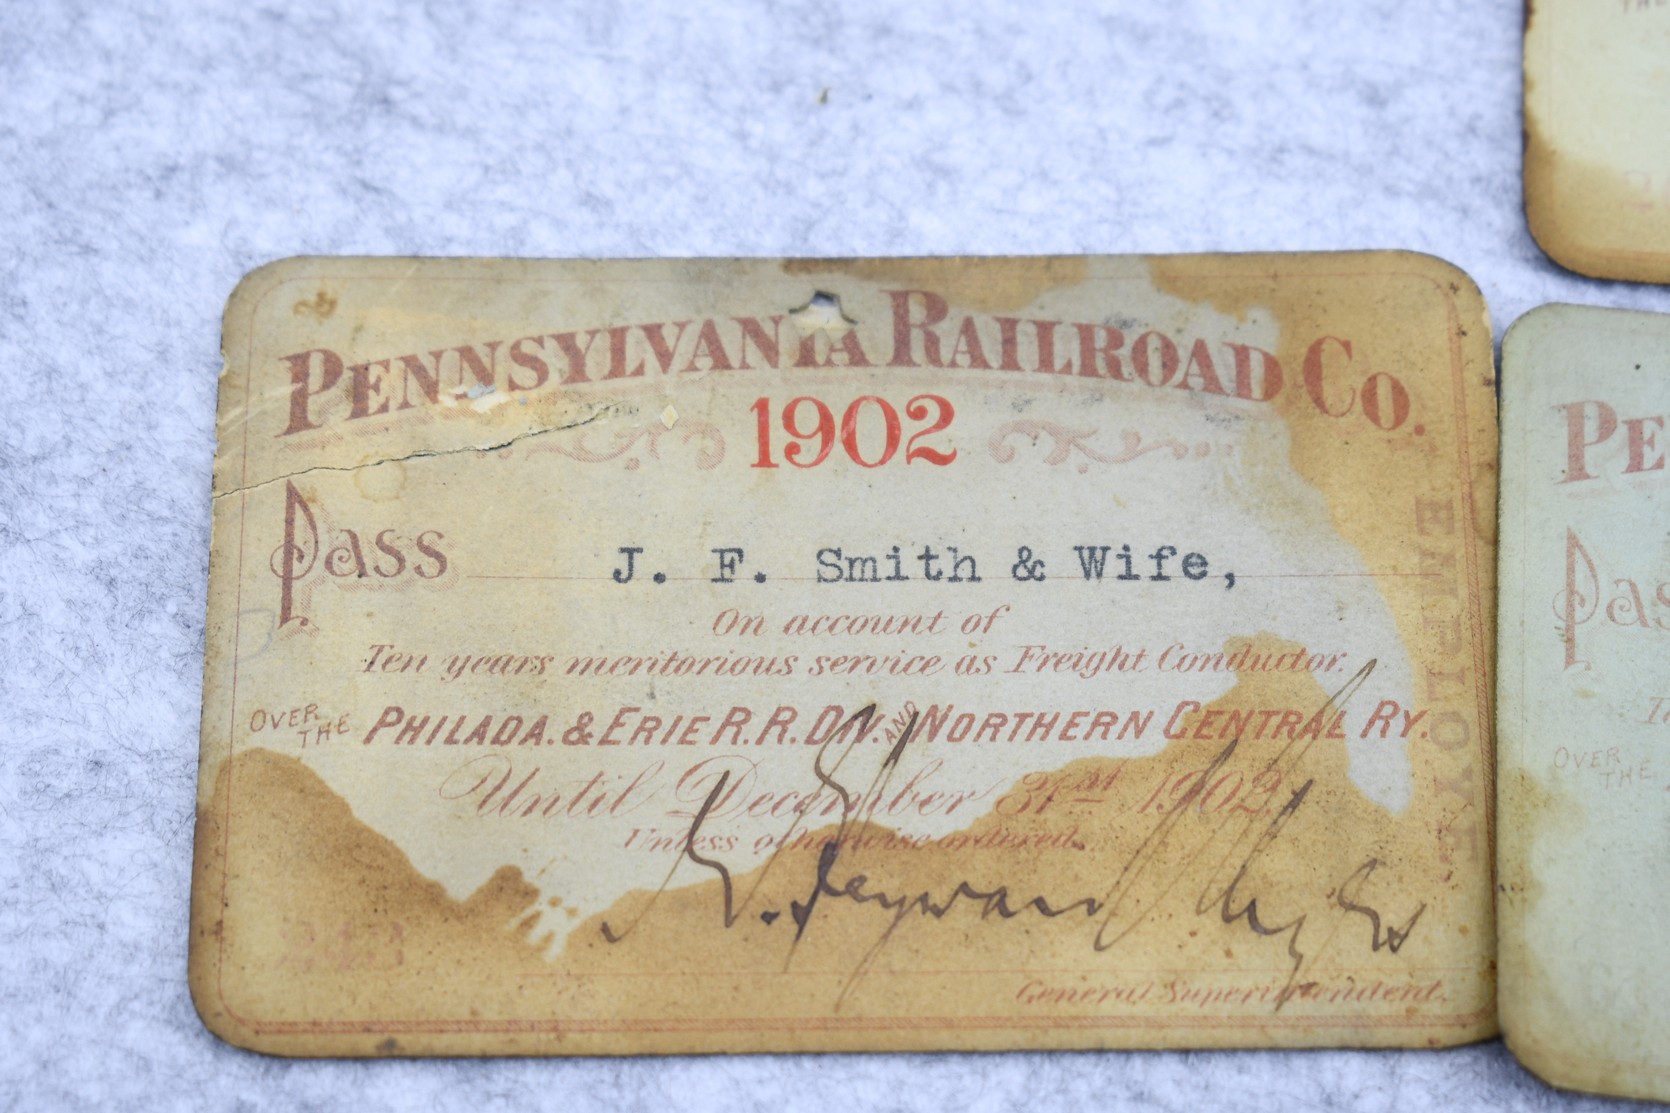 PENNSYLVANIA RAILROAD CO.
1902
Pass J. F. Smith & Wife,
On account of
Ten years meritorious service as Freight Conductor.
OVER THE PHILADA. & ERIE R.R. DIV. AND NORTHERN CENTRAL RY.
Until December 31st 1902,
Unless otherwise ordered.
General Superintendent.
EMPLOYE
PE
Pas
OVER THE